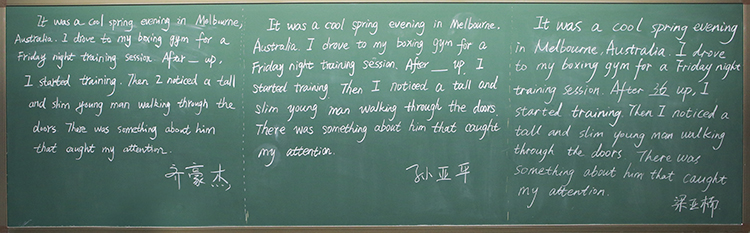 It was a cool spring evening in Melbourne,
Australia. I drove to my boxing gym for a
Friday night training session. After __ up,
I started training. Then I noticed a tall
and slim young man walking through the
doors There was something about him
that caught my attention.
齐豪杰
It was a cool spring evening in Melbourne.
Australia. I drove to my boxing gym for a
Friday night training session. After __ up I
started training. Then I noticed a tall and
slim young man walking through the doors.
There was something about him that caught
my attention.
孙亚平
It was a cool spring evening
in Melbourne, Australia. I drove
to my boxing gym for a Friday night
training session. After 36 up, I
started training. Then I noticed a
tall and slim young man walking
through the doors. There was
something about him that caught
my attention.
梁亚楠